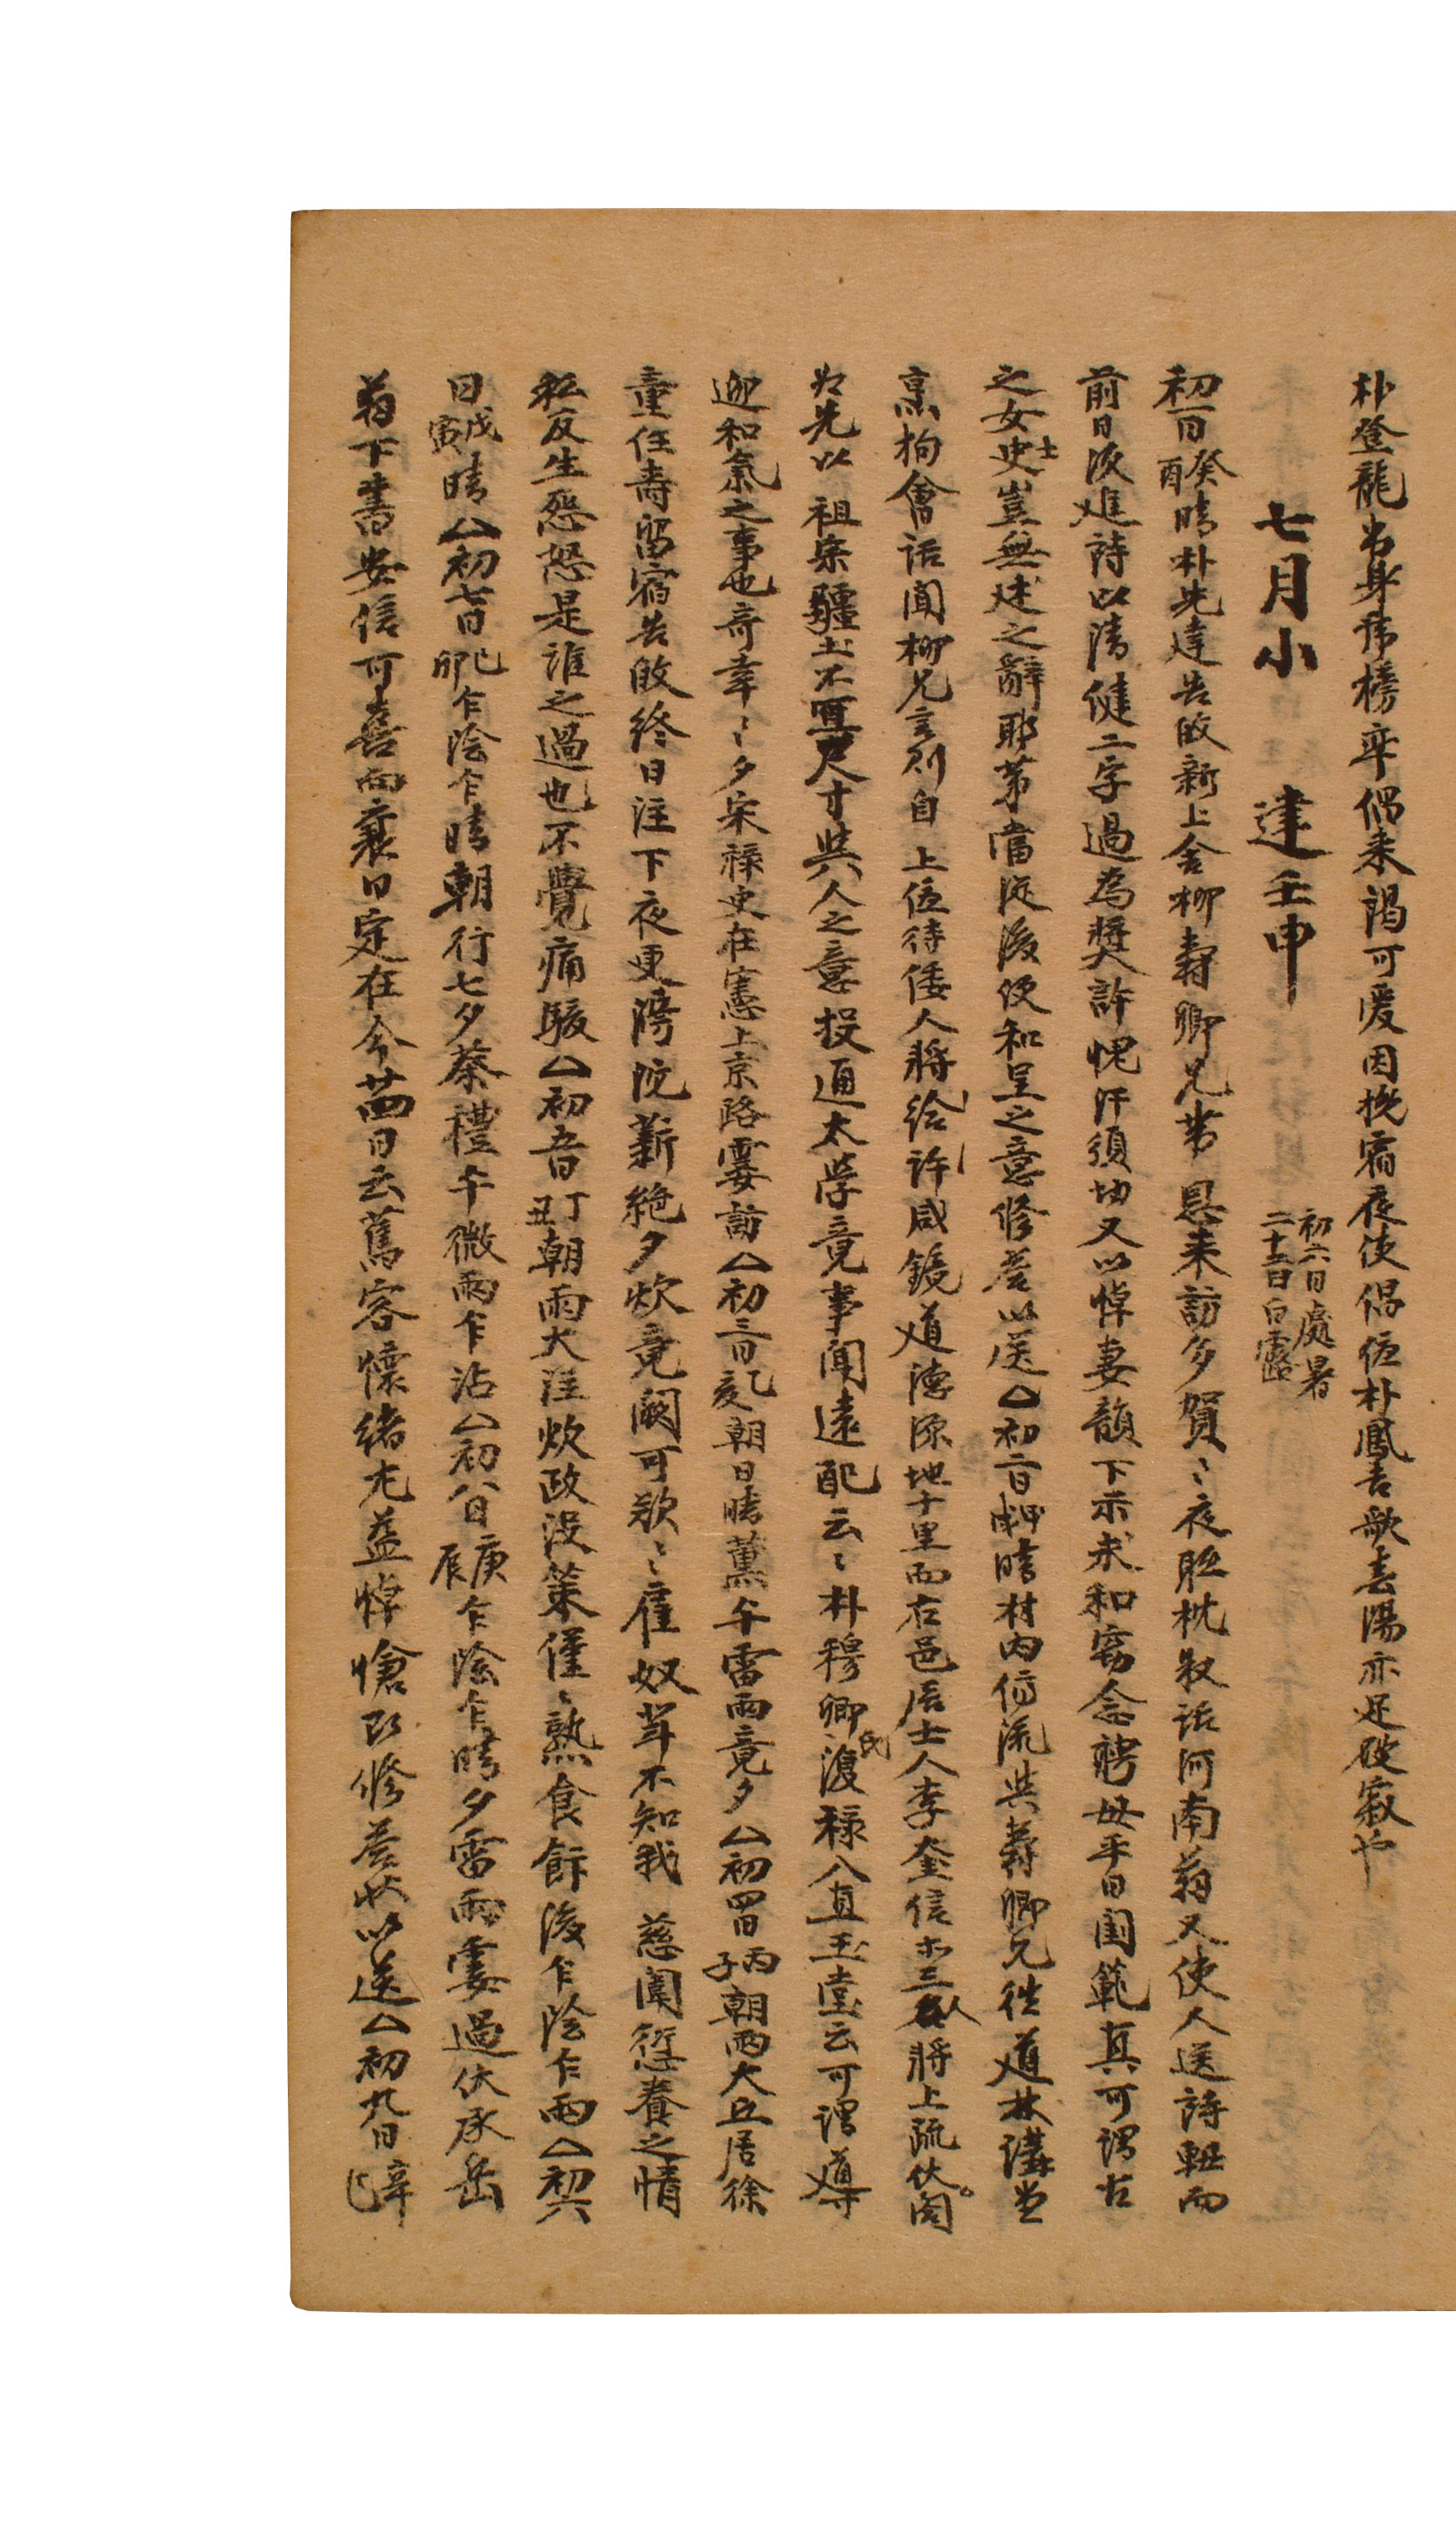 朴登龍出身帶榜來偶来謁可愛因挽宿夜使倡伍朴鳳吉歌春陽亦足破寂也
七月小 建壬申 初六日處暑 二十一日白露
初一日癸酉晴朴先達告敀新上舍柳壽卿兄帶 恩来訪多賀〻夜聯枕叙話河南翁又使人送詩軸而
前日復進詩以清健二字過為奬許愧汗須切又以悼妻韻下示求和窃念聘母平日閨範真可謂古
之女史士豈無述之辭耶第當從後便和呈之意修答以送△初二日甲戌晴材內傍流共壽卿兄徃道林講堂
烹狗會話聞柳兄言則自 上位待倭人將給許咸鏡道德源地十里而右邑居士人李 信 三人將上疏伏閤
爲先以 祖宗疆土不 尺寸與人之意投通太學竟事聞遠配云〻朴穆卿氏復祿入直玉堂云可謂 導
迎和氣之事也奇幸〻夕宋祿史在憲上京路霎訪△初三日乙亥朝日晴薰午雷雨竟夕△初四日丙子朝雨大丘居徐
童任壽留宿告敀終日注下夜更滂沱薪絶夕炊竟闕可歎〻雇奴輩不知我 慈闈愆養之情
私反生怨怒是誰之過也不覺痛駭△初五日丁丑朝雨大注炊政沒策僅〻熟食餙後乍陰乍雨△初六
日戊寅晴△初七日己卯乍陰乍晴朝行七夕茶禮午微雨乍沾△初八日庚辰乍陰乍晴夕雷雨霎過伏承岳
翁下書安信可喜而襄日定在今廿四日云舊客懷緒尤益悼愴以修答狀以送△初九日辛巳